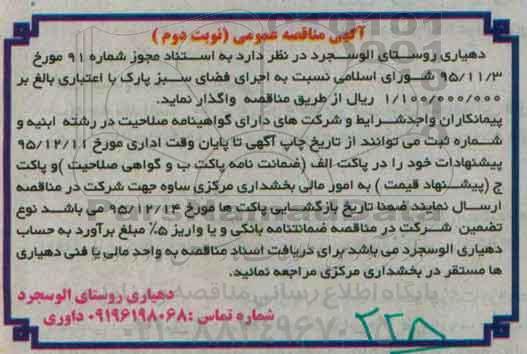 آگهی مناقصه عمومی (نوبت دوم)
دهیاری روستای الوسجرد در نظر دارد به استناد مجوز شماره ۹۱ مورخ
۹۵/۱۱/۳ شورای اسلامی نسبت به اجرای فضای سبز پارک با اعتباری بالغ بر
۱/۱۰۰/۰۰۰/۰۰۰ ریال از طریق مناقصه واگذار نماید.
پیمانکاران واجدشرایط و شرکت های دارای گواهینامه صلاحیت در رشته ابنیه و
شماره ثبت می توانند از تاریخ چاپ آگهی تا پایان وقت اداری مورخ ۹۵/۱۲/۱۱
پیشنهادات خود را در پاکت الف (ضمانت نامه پاکت ب و گواهی صلاحیت )و پاکت
ج (پیشنهاد قیمت ) به امور مالی بخشداری مرکزی ساوه جهت شرکت در مناقصه
ارسال نمایند ضمنا تاریخ بازگشایی پاکت ها مورخ ۹۵/۱۲/۱۴ می باشد نوع
تضمین شرکت در مناقصه ضمانتنامه بانکی و یا واریز ۵٪ مبلغ برآورد به حساب
دهیاری الوسجرد می باشد برای دریافت اسناد مناقصه به واحد مالی یا فنی دهیاری
ها مستقر در بخشداری مرکزی مراجعه نمائید.
دهیاری روستای الوسجرد
شماره تماس :۰۹۱۹۶۱۹۸۰۶۸ داوری
۲۲۵
پایگاه اطلاع رسانی مناقصه